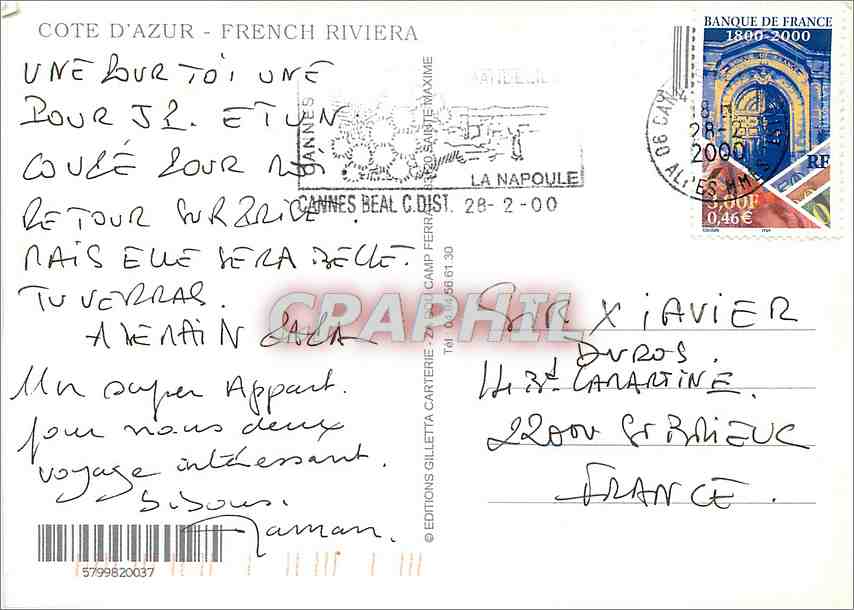 COTE D'AZUR - FRENCH RIVIERA
UNE POUR TOI UNE
POUR J2. ET UN
COUCÉ POUR
RETOUR SUR BRIVE.
MAIS ELLE SERA BELLE.
TU VERRAS.
A DEMAIN PAPA
Un super Appart.
pour nous deux
voyage intéressant.
Bisous.
Maman.
5799820037
© EDITIONS GILLETTA CARTERIE - ZA DU CAMP FERRAT - 83120 SAINTE MAXIME
Tél : 04 94 56 61 30
CANNES
LA NAPOULE
CANNES BEAL C.DIST. 28-2-00
06 CANNES
28-2
2000
ALPES MMES
BANQUE DE FRANCE
1800-2000
RF
3,00F
0,46€
SIR XIAVIER
DUROS.
14 Bd LAMARTINE.
22000 St BRIEUC
FRANCE.
CPARPHIL